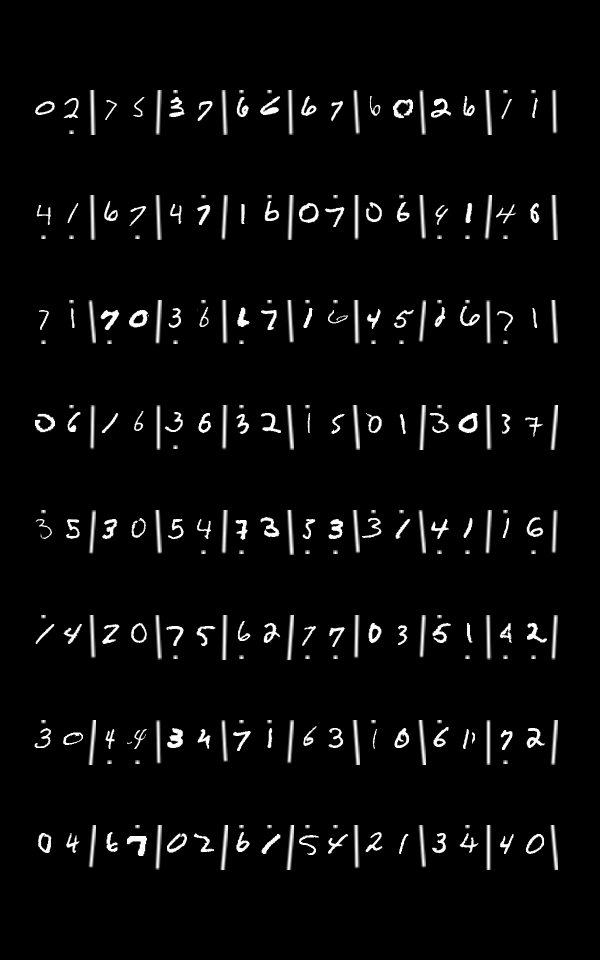 0 2 | 7 5 | 3 7 | 6 6 | 6 7 | 6 0 | 2 6 | 1 1 |
4 1 | 6 7 | 4 7 | 1 6 | 0 7 | 0 6 | 4 1 | 4 6 |
7 1 | 7 0 | 3 6 | 6 7 | 1 6 | 4 5 | 2 6 | 7 1 |
0 6 | 1 6 | 3 6 | 3 2 | 1 5 | 0 1 | 3 0 | 3 7 |
3 5 | 3 0 | 5 4 | 7 3 | 5 3 | 3 1 | 4 1 | 1 6 |
1 4 | 2 0 | 7 5 | 6 2 | 7 7 | 0 3 | 5 1 | 4 2 |
3 0 | 4 4 | 3 4 | 7 1 | 6 3 | 1 0 | 6 1 | 7 2 |
0 4 | 6 7 | 0 2 | 6 1 | 5 4 | 2 1 | 3 4 | 4 0 |